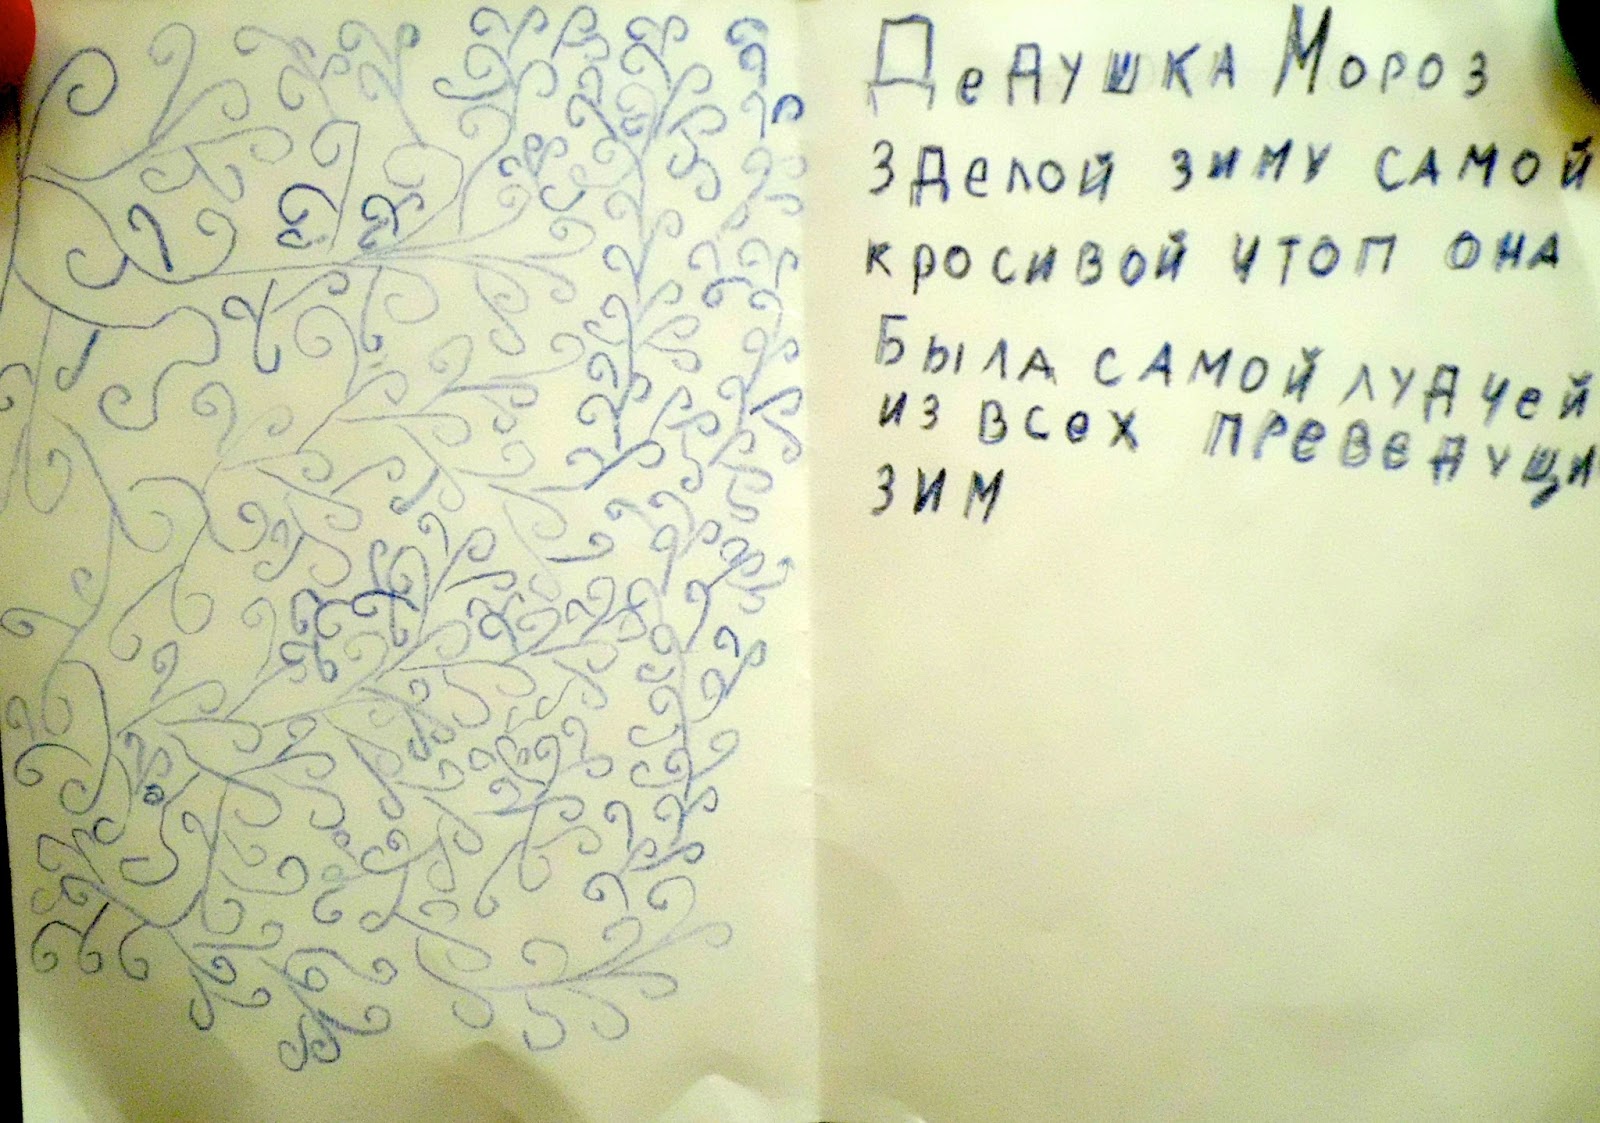 Дедушка Мороз
зделой зиму самой
кросивой чтоп она
Была самой лудчей
из всех преведущи
зим